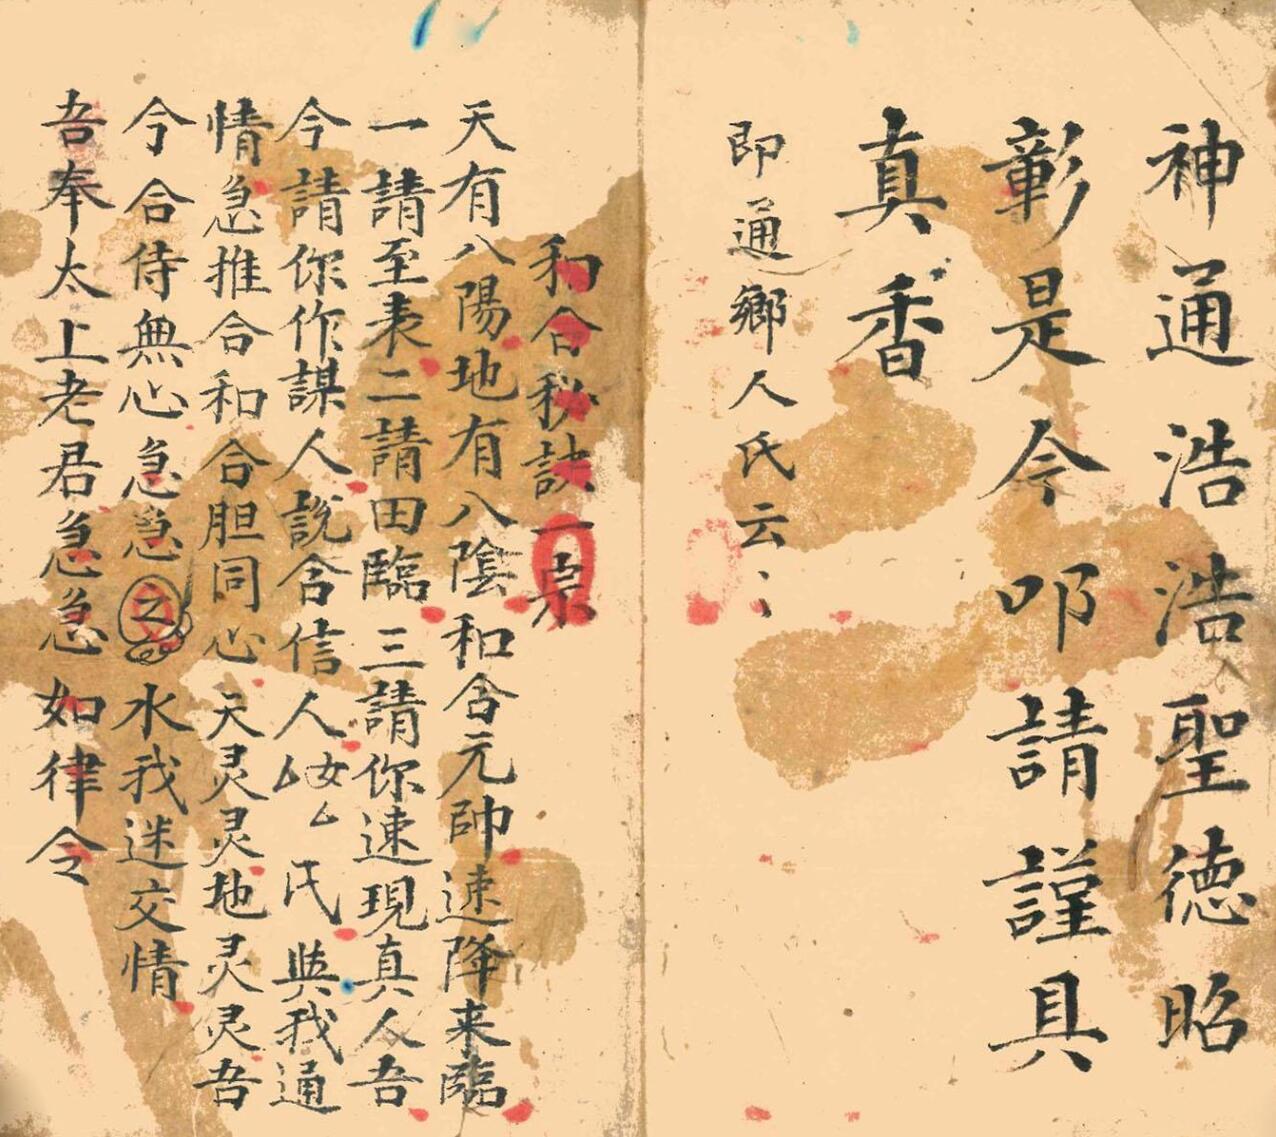 神通浩浩聖德昭
彰是今叩請謹具
真香
即通鄉人氏云、、
和合秘訣一宗
天有八陽地有八陰和合元帥速降来臨
一請至表二請田臨三請你速現真人吾
今請你作謀人説合信人厶女厶氏與我通
情急推合和合胆同心天灵灵地灵灵吾
今合侍無心急急之水我迷交情
吾奉太上老君急急如律令